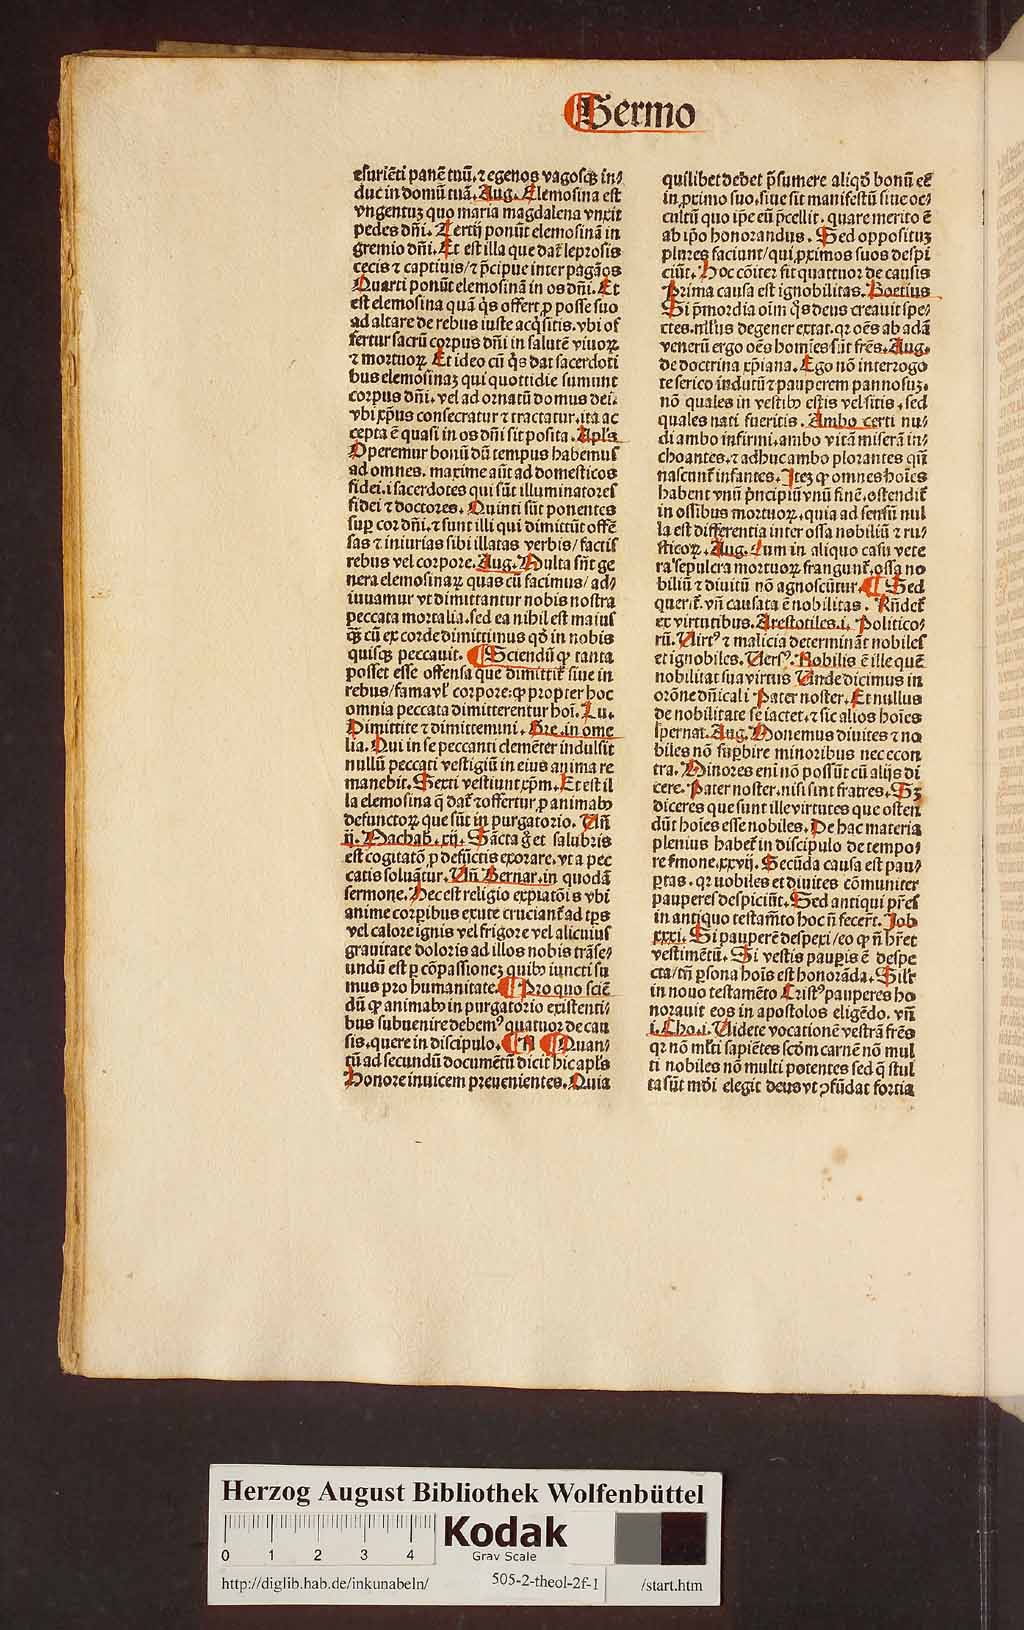 Sermo
esuriēti panē tuū, ⁊ egenos vagosqꝫ in⸗
duc in domū tuā. Aug. Elemosina est
vngentuꝫ quo maria magdalena vnxit
pedes dñi. Tertij ponūt elemosinā in
gremio dñi. Et est illa que dat̄ leprosis
cecis ⁊ captiuis/ ⁊ p̄cipue inter pagāos
Quarti ponūt elemosinā in os dñi. Et
est elemosina quā q̇s offert ꝓ posse suo
ad altare de rebus iuste acq̇sitis. vbi of
fertur sacrū corpus dñi in salutē viuoꝝ
⁊ mortuoꝝ Et ideo cū q̇s dat sacerdoti
bus elemosinaꝫ qui quottidie sumunt
corpus dñi. vel ad ornatū domus dei.
vbi xp̄us consecratur ⁊ tractatur. ita ac
cepta ē quasi in os dñi sit posita. Apl's
Operemur bonū dū tempus habemus
ad omnes. maxime aūt ad domesticos
fidei. i sacerdotes qui sūt illuminatores
fidei ⁊ doctores. Quinti sūt ponentes
suꝑ cor dñi. ⁊ sunt illi qui dimittūt offē
sas ⁊ iniurias sibi illatas verbis/ factis
rebus vel corpore. Aug. Multa sūt ge
nera elemosinaꝝ quas cū facimus/ ad⸗
iuuamur vt dimittantur nobis nostra
peccata mortalia. sed ea nihil est maius
qꝫ cū ex corde dimittimus qd̄ in nobis
quisqꝫ peccauit. Sciendū ꝙ tanta
posset esse offensa que dimittit̄ siue in
rebus/ fama vl' corpore: ꝙ propter hoc
omnia peccata dimitterentur hoī. Lu.
Dimittite ⁊ dimittemini. Gre. in ome
lia. Qui in se peccanti clemēter indulsit
nullū peccati vestigiū in eius anima re
manebit. Sexti vestiunt xp̄m. Et est il
la elemosina q̄ dat̄ ⁊ offertur ꝓ animabꝫ
defunctoꝝ que sūt in purgatorio. Vn̄
ij. Machab. xij. Sācta g̊ et salubris
est cogitatō ꝓ defūctis exorare. vt a pec
catis soluātur. Vn̄ Bernar. in quodā
sermone. Hec est religio expiatōis vbi
anime corꝑibus exute cruciant̄ ad tp̄s
vel calore ignis vel frigore vel alicuius
grauitate doloris ad illos nobis trāse⸗
undū est ꝑ cōpassioneꝫ quibꝫ iuncti su
mus pro humanitate. Pro quo sciē
dū ꝙ animabꝫ in purgatorio existenti⸗
bus subuenire debemꝰ quatuor de cau
sis. quere in discipulo. N Quan⸗
tū ad secundū documētū dicit hic apl's
Honore inuicem preuenientes. Quia
quilibet debet p̄sumere aliqd̄ bonū eē
in ꝓximo suo, siue sit manifestū siue oc⸗
cultū quo ip̄e eū p̄cellit. quare merito ē
ab ip̄o honorandus. Sed oppositnꝫ
plures faciunt/ qui ꝓximos suos despi
ciūt. Hoc cōiter fit quattuor de causis
Prima causa est ignobilitas. Boetius
Si p̄mordia oīm q̇s deus creauit spe⸗
ctes. nll'us degener extat. qꝛ oēs ab adā
venerū ergo oēs homīes sūt frēs. Aug.
de doctrina xp̄iana. Ego nō interrogo
te serico indutū ⁊ pauperem pannosuꝫ.
nō quales in vestibꝫ estis vel sitis, sed
quales nati fueritis. Ambo certi nu⸗
di ambo infirmi. ambo vitā miserā in⸗
choantes. ⁊ adhuc ambo plorantes qn̄
nascunt̄ infantes. Iteꝫ ꝙ omnes hoīes
habent vnū p̄ncipiū vnū finē. ostendit̄
in ossibus mortuoꝝ. quia ad sensū nul
la est differentia inter ossa nobiliū ⁊ ru⸗
sticoꝝ. Aug. Cum in aliquo casu vete
ra sepulcra mortuoꝝ frangunt̄. ossa no
biliū ⁊ diuitū nō agnoscūtur. Sed
querit̄. vn̄ causata ē nobilitas. Rn̄det̄
ex virtutibus. Arestotiles. i. Politico⸗
rū. Virtꝰ ⁊ malicia determināt nobiles
et ignobiles. Versꝰ. Nobilis ē ille quē
nobilitat sua virtus Vnde dicimus in
orōne dn̄icali Pater noster. Et nullus
de nobilitate se iactet. ⁊ sic alios hoīes
spernat. Aug. Monemus diuites ⁊ no
biles nō suꝑbire minoribus nec econ
tra. Minores eni nō possūt cū alijs di
cere. Pater noster. nisi sint fratres. Sꝫ
diceres que sunt ille virtutes que osten
dūt hoīes esse nobiles. De hac materia
plenius habet̄ in discipulo de tempo⸗
re sermone. xxvij. Secūda causa est pau⸗
ꝑtas. qꝛ nobiles et diuites cōmuniter
pauperes despiciūt. Sed antiqui pr̄es
in antiquo testam̄to hoc n̄ fecer̄t. Job
xxxi. Si pauperē despexi/ eo ꝙ n̄ hr̄et
vestimētū. Si vestis pauꝑis ē despe
cta/ tn̄ ꝑsona hoīs est honorāda. Sil'r
in nouo testamēto Cristꝰ pauperes ho
norauit eos in apostolos eligēdo. vn̄
i. Cho. i. Videte vocationē vestrā frēs
qꝛ nō ml'ti sapiētes scd̄m carnē nō mul
ti nobiles nō multi potentes sed q̄ stul
ta sūt mūdi elegit deus vt ꝯfūdat fortia
Herzog August Bibliothek Wolfenbüttel
0 1 2 3 4
Kodak
Gray Scale
http://diglib.hab.de/inkunabeln/ 505-2-theol-2f-1 /start.htm